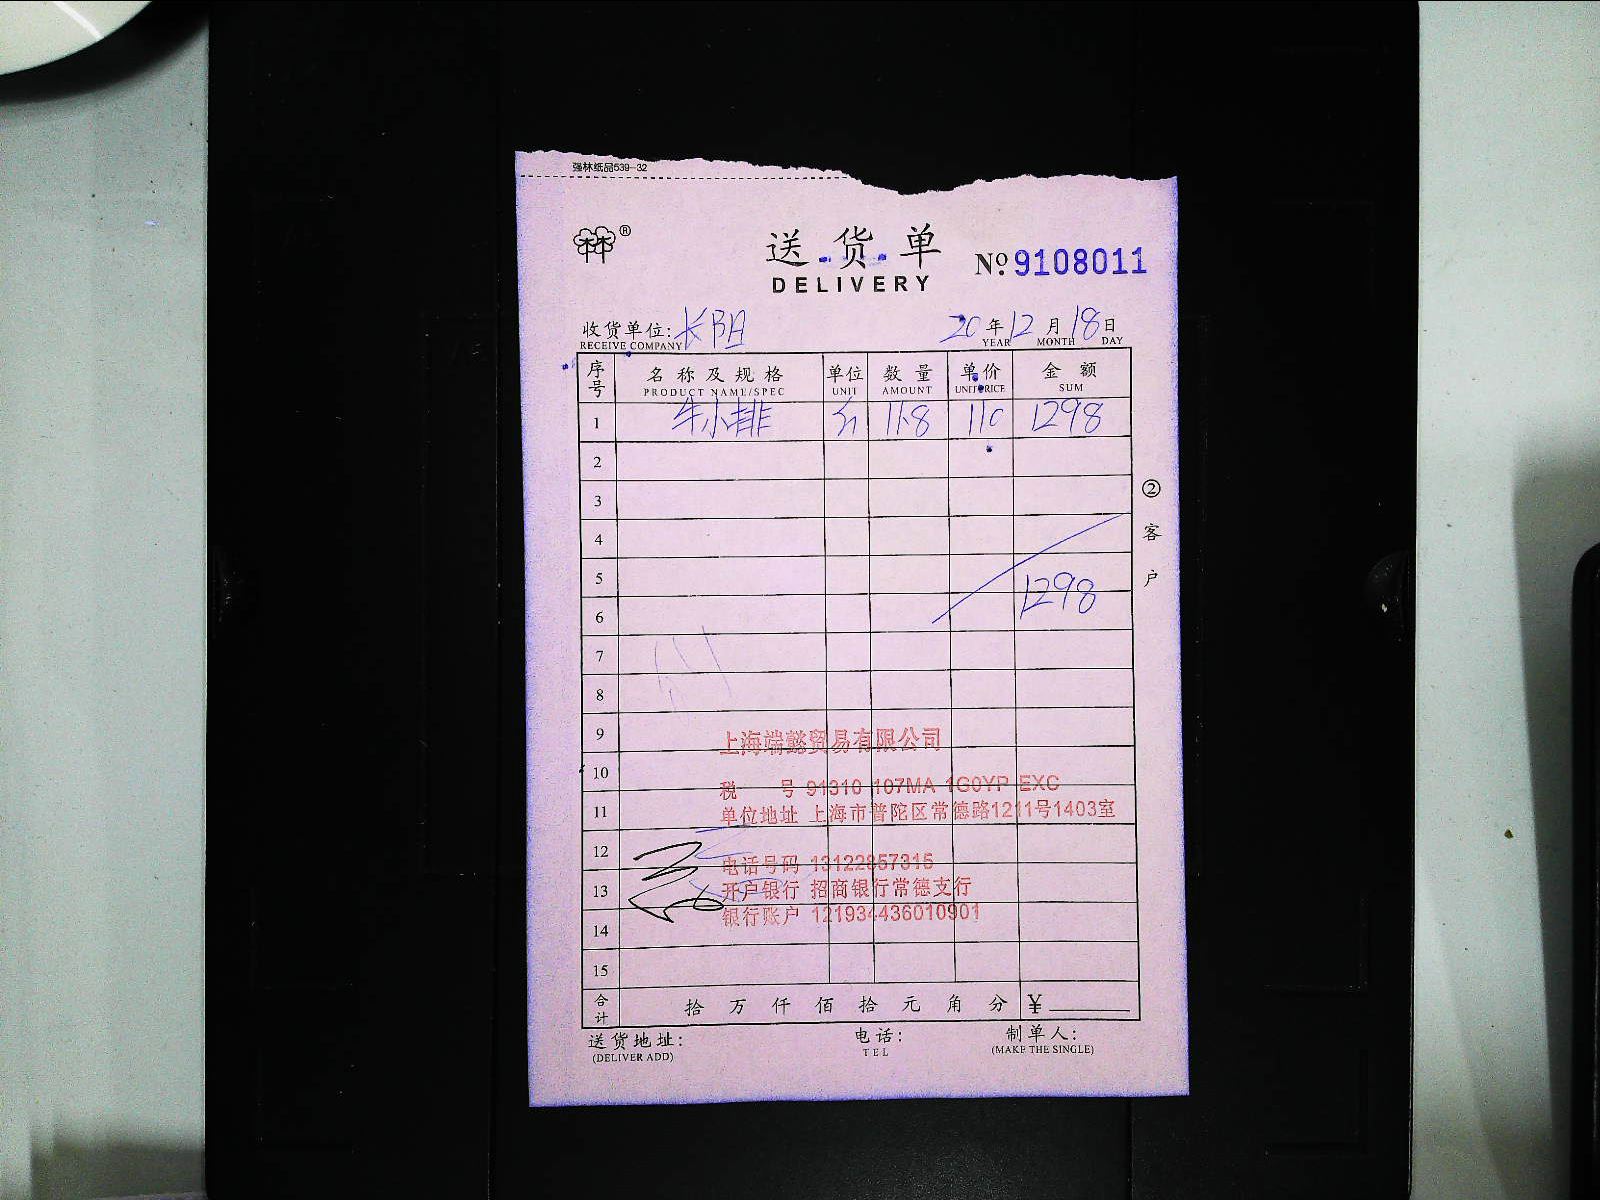 强林纸品539-32
林®
送货单
DELIVERY
№ 9108011
收货单位: 长阳
RECEIVE COMPANY
20年12月18日
YEAR MONTH DAY
序号 名称及规格 单位 数量 单价 金额
PRODUCT NAME/SPEC UNIT AMOUNT UNIT PRICE SUM
1 牛小排 斤 11.8 110 1298
2
3
4
5
1298
6
7
8
9
10
11
12
13
14
15
② 客户
上海端懿贸易有限公司
税 号 91310 107MA 1G0YP EXC
单位地址 上海市普陀区常德路1211号1403室
电话号码 13122857315
开户银行 招商银行常德支行
银行账户 121934436010901
合计 拾 万 仟 佰 拾 元 角 分 ¥
送货地址: 电话: 制单人:
(DELIVER ADD) TEL (MAKE THE SINGLE)